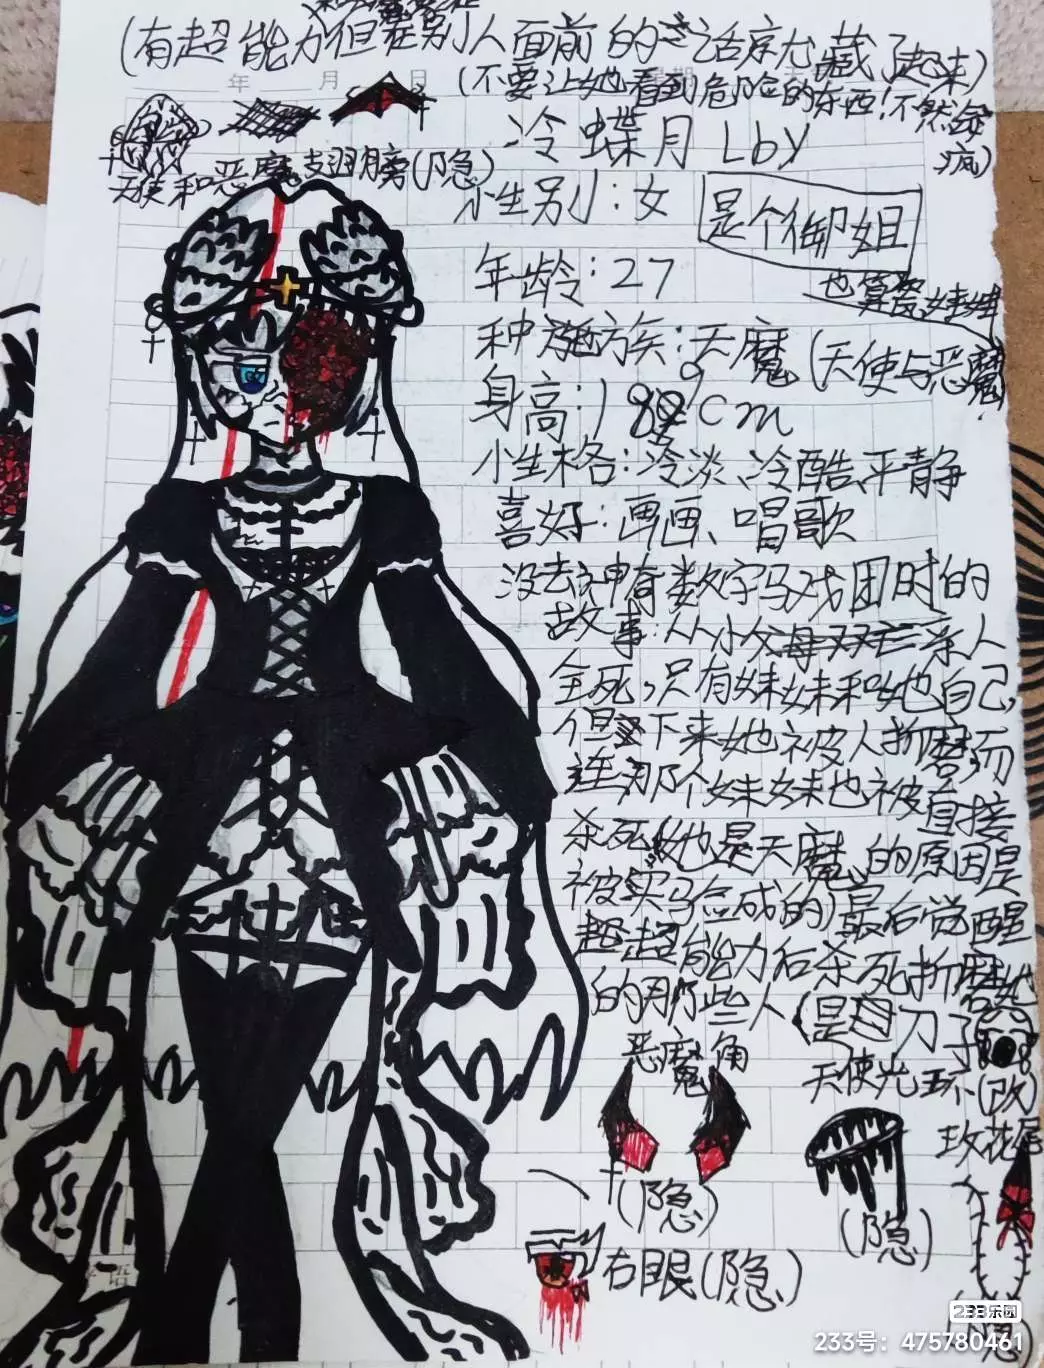 (有超能力但在别人面前的话就藏了起来)
年 月 日 星期
(不要让她看到危险的东西!不然会疯)
冷蝶月 Lby
天使和恶魔翅膀(隐)
性别:女
是个御姐
年龄:27
也算是妹妹
种族:天魔(天使与恶魔)
身高:189cm
性格:冷淡、冷酷、平静
喜好:画画、唱歌
没去神奇数字马戏团时的
故事:从小父母双亡亲人
全死,只有妹妹和她自己,
但接下来她被人折磨而
连那个妹妹也被直接
杀死(她是天魔的原因是
被实验合成的)最后觉醒
超能力后杀死折磨她
的那些人(是用刀子)
恶魔角
天使光环(改)
玫花尾
(隐)
(隐)
右眼(隐)
(隐)
233乐园
233号:475780461